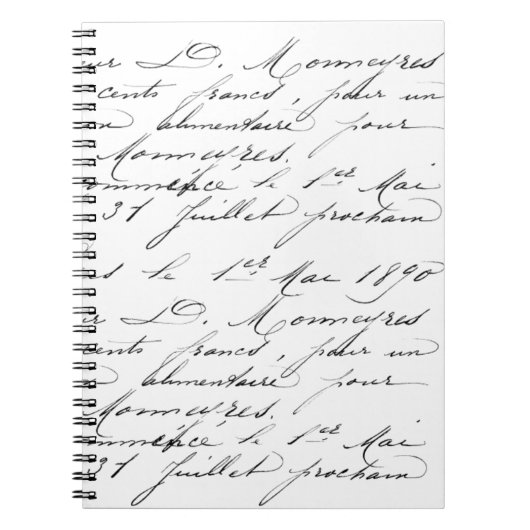 ur D. Monneyres
cents francs, pour un
on alimentaire pour
Monneyres.
ommencé le 1er Mai
31 Juillet prochain
s le 1er Mai 1890
ur D. Monneyres
cents francs, pour un
on alimentaire pour
Monneyres.
ommencé le 1er Mai
31 Juillet prochain